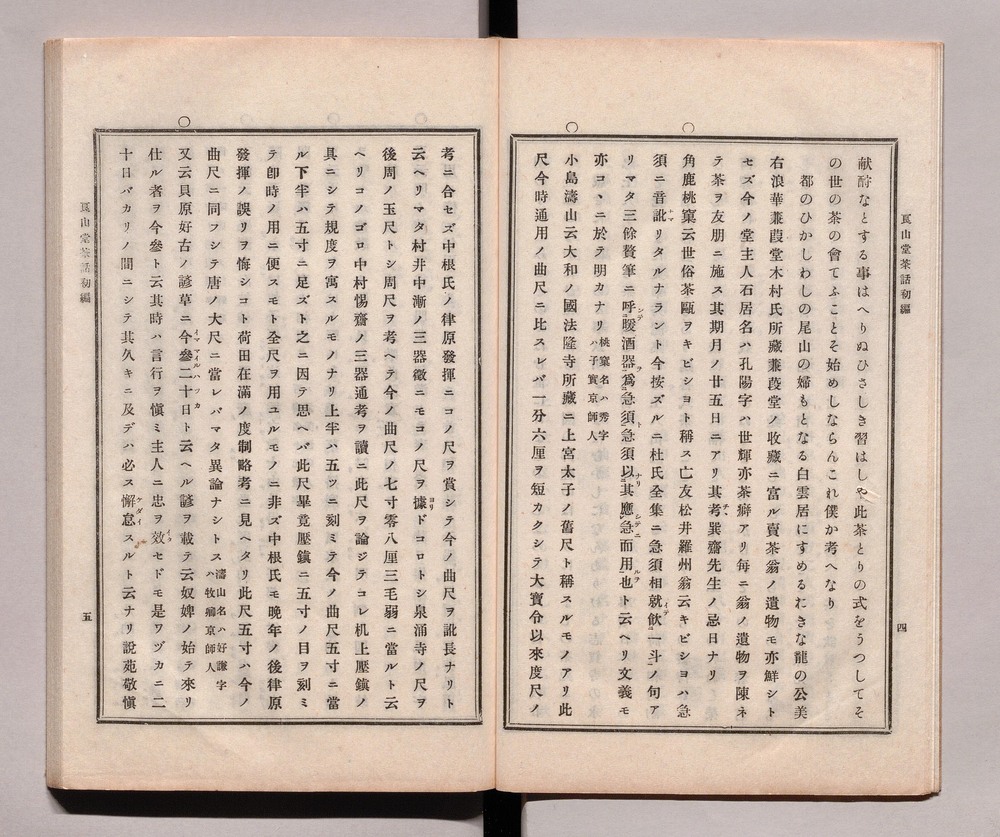 莨山堂茶話初編
四
献酧なとする事はへりぬひさしき習はしや此茶とりの式をうつしてそ
の世の茶の會てふことそ始めしならんこれ僕か考へなり
都のひかしわしの尾山の婦もとなる白雲居にすめるおきな龍の公美
右浪華蒹葭堂木村氏所藏蒹葭堂ノ收藏ニ富ル賣茶翁ノ遺物モ亦鮮シト
セズ今ノ堂主人石居名ハ孔陽字ハ世輝亦茶癖アリ每ニ翁ノ遺物ヲ陳ネ
テ茶ヲ友朋ニ施ス其期月ノ廿五日ニアリ其考巽齋先生ノ忌日ナリ
○角鹿桃窠云世俗茶甌ヲキビシヨト稱ス亡友松井羅州翁云キビシヨハ急
須ニ音訛リタルナラント今按ズルニ杜氏全集ニ急須相就飮一斗ノ句ア
リマタ三餘贅筆ニ呼暖酒器爲急須急須以其應急而用也ト云ヘリ文義モ
亦コヽニ於テ明カナリ桃窠名ハ秀字ハ子實京師人
○小島濤山云大和ノ國法隆寺所藏ニ上宮太子ノ舊尺ト稱スルモノアリ此
尺今時通用ノ曲尺ニ比スレバ一分六厘ヲ短カクシテ大寶令以來度尺ノ
考ニ合セズ中根氏ノ律原發揮ニコノ尺ヲ賞シテ今ノ曲尺ヲ訛長ナリト
云ヘリマタ村井中漸ノ三器徵ニモコノ尺ヲ據ドコロトシ泉涌寺ノ尺ヲ
後周ノ玉尺トシ周尺ヲ考ヘテ今ノ曲尺ノ七寸零八厘三毛弱ニ當ルト云
ヘリコノゴロ中村惕齋ノ三器通考ヲ讀ニ此尺ヲ論ジテコレ机上壓鎭ノ
具ニシテ規度ヲ寓スルモノナリ上半ハ五ツニ刻ミテ今ノ曲尺五寸ニ當
ル下半ハ五寸ニ足ズト之ニ因テ思ヘバ此尺畢竟壓鎭ニ五寸ノ目ヲ刻ミ
テ卽時ノ用ニ便スモト全尺ヲ用ユルモノニ非ズ中根氏モ晩年ノ後律原
發揮ノ誤リヲ悔シコト荷田在滿ノ度制略考ニ見ヘタリ此尺五寸ハ今ノ
曲尺ニ同フシテ唐ノ大尺ニ當レバマタ異論ナシトス濤山名ハ好謙字ハ牧卿京師人
○又云貝原好古ノ諺草ニ今參二十日ト云ヘル諺ヲ載テ云奴婢ノ始テ來リ
仕ル者ヲ今參ト云其時ハ言行ヲ愼ミ主人ニ忠ヲ效セドモ是ワヅカニ二
十日バカリノ間ニシテ其久キニ及デハ必ス懈怠スルト云ナリ說苑敬愼
莨山堂茶話初編
五